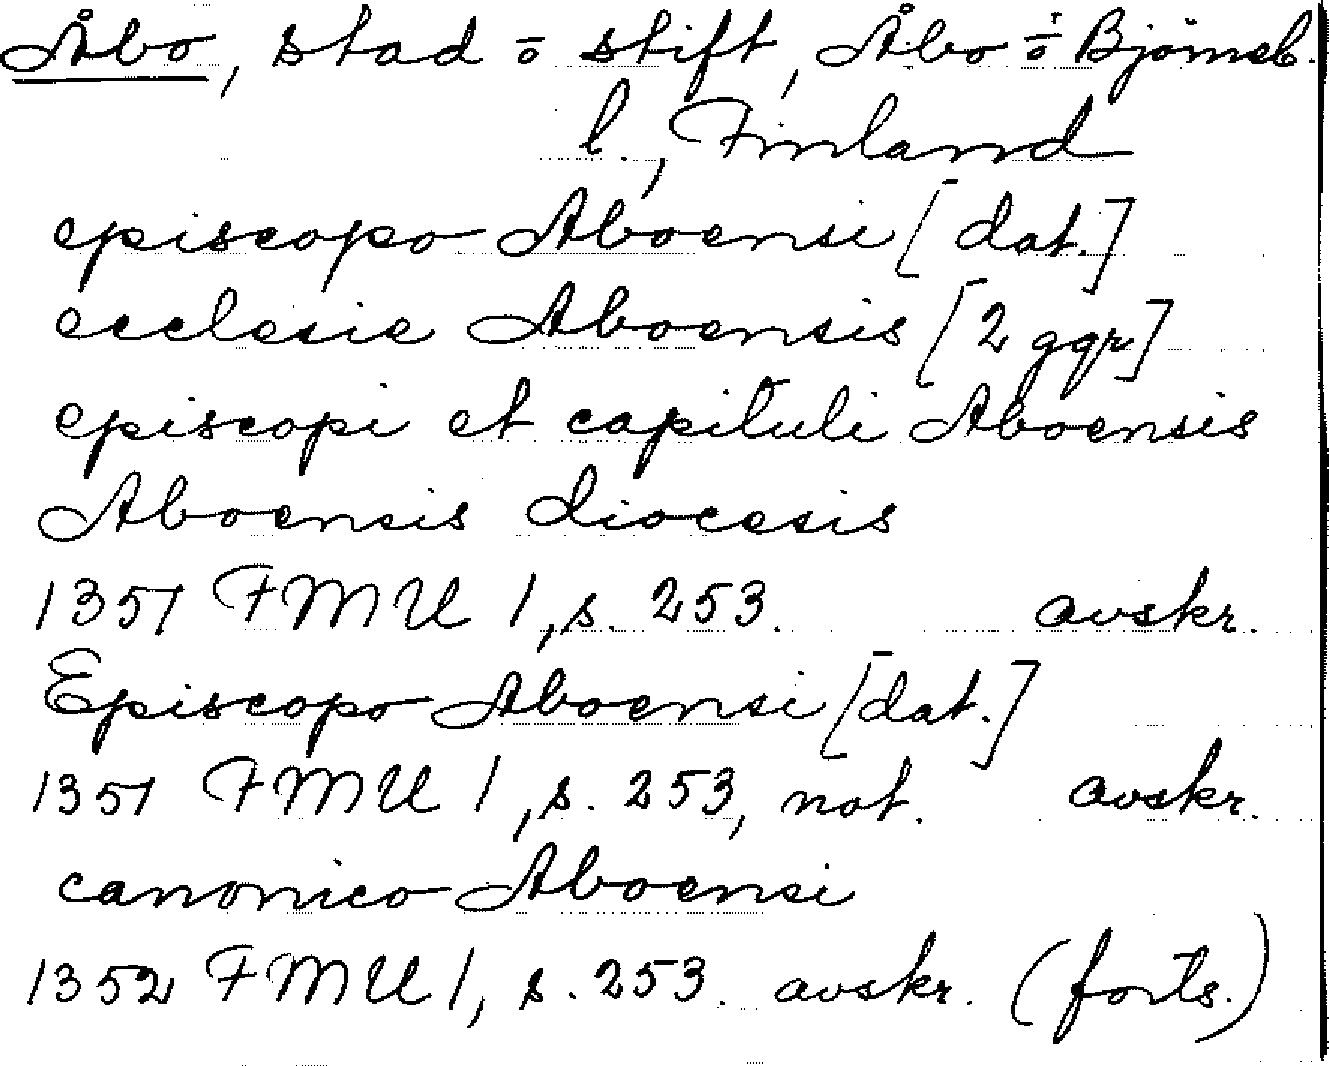 Åbo, stad o stift, Åbo o Björneb.
l., Finland
episcopo Aboensi [dat.]
ecclesie Aboensis [2 ggr]
episcopi et capituli Aboensis
Aboensis diocesis
1351 FMU 1, s. 253. avskr.
Episcopo Aboensi [dat.]
1351 FMU 1, s. 253, not. avskr.
canonico Aboensi
1352 FMU 1, s. 253. avskr. (forts.)